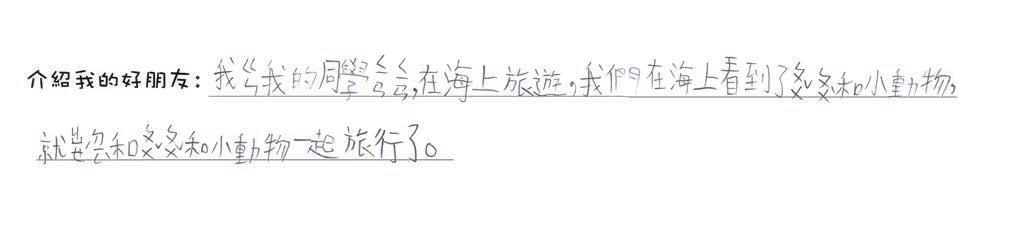 介紹我的好朋友: 我 我的同學 ,在海上旅遊。我們在海上看到了 和小動物,
就 和 和小動物一起旅行了。